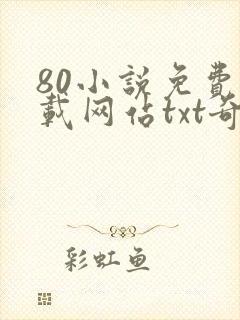 80小説免費
載网佔txt奇
彩虹鱼